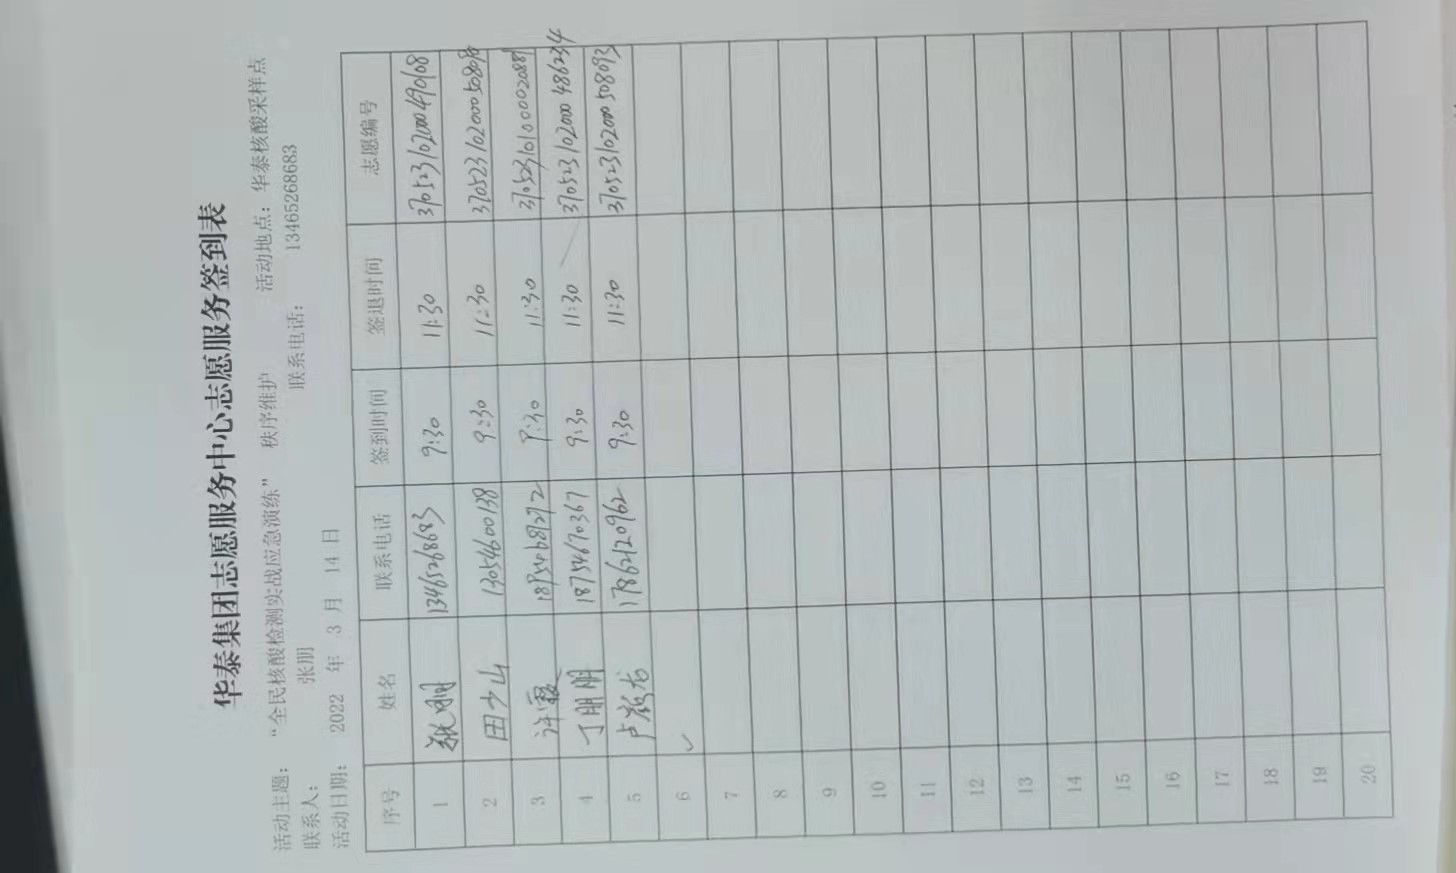 华泰集团志愿服务中心志愿服务签到表
活动主题： “全民核酸检测实战应急演练” 秩序维护 活动地点：华泰核酸采样点
联系人： 张朋 联系电话： 13465268683
活动日期： 2022 年 3 月 14 日
序号 姓名 联系电话 签到时间 签退时间 志愿编号
1 13465268683 9:30 11:30 370523102000490108
2 田少山 13054600138 9:30 11:30
3 许霞 9:30 11:30
4 丁朋朋 18754670367 9:30 11:30 3705231020000486234
5 17862120962 9:30 11:30 3705231020000508093
6
7
8
9
10
11
12
13
14
15
16
17
18
19
20